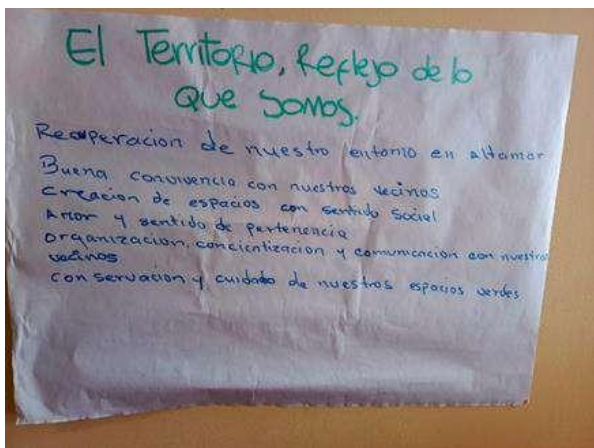 El Territorio, Reflejo de lo
que somos.
Recuperacion de nuestro entorno en altamar
Buena convivencia con nuestros vecinos
creacion de espacios con sentido social
Amor y sentido de pertenencia
organizacion, concientizacion y comunicacion con nuestros
vecinos
conservacion y cuidado de nuestros espacios verdes